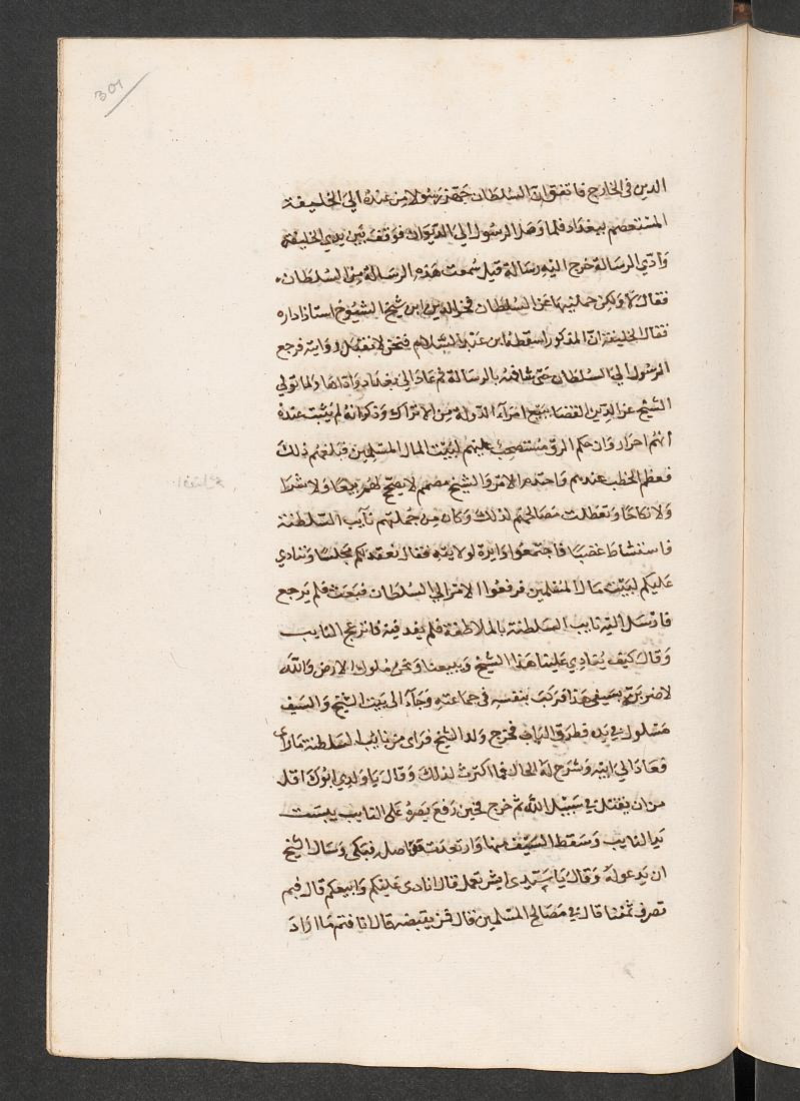 301
الدين في الخارج فاتفق ان السلطان جهز رسولا من عنده الي الخليفة
المستعصم ببغداد فلما وصل الرسول الي الديوان ووقف بين يدي الخليفة
وادي الرسالة خرج اليه رسالة قيل سمعت هذه الرسالة من السلطان
فقال لا ولكن حملنيها عن السلطان فخر الدين ابن شيخ الشيوخ استاذ اداره
فقال الخليفة ان المذكور اسقطه ابن عبد السلام فنحن لا نقبل روايته فرجع
الرسول الي السلطان حتى شافهه بالرسالة ثم عاد الي بغداد واداها ولما تولي
الشيخ عز الدين القضا بيع امراء الدولة من الاتراك وذكر انه لم يثبت عنده
انهم احرار وان حكم الرق مستصحب عليهم لبيت المال المسلمين فبلغهم ذلك
فعظم الخطب عندهم واحتدم الامر والشيخ مصمم لا يصح لهم بيعا ولا شرا
ولا نكاحا وتعطلت مصالحهم لذلك وكان من جملتهم نايب السلطنة
فاستشاط غضبا فاجتمعوا فقال نعقد لكم مجلسا وننادي
عليكم لبيت مال المسلمين فرفعوا الامر الي السلطان فبعث فلم يرجع
فارسل اليه نايب السلطنة بالملاطفة فلم يفد فيه فانزعج النايب
وقال كيف ينادي علينا هذا الشيخ ويبيعنا ونحن ملوك الارض والله
لاضربنه بسيفي هذا فركب بنفسه في جماعته وجاء الى بيت الشيخ والسيف
مسلول في يده فطرق الباب فخرج ولد الشيخ فراى من نايب السلطنة ما راى
فعاد الي ابيه وشرح له الحال فما اكترث لذلك وقال يا ولدي ابوك اقل
من ان يقتل في سبيل الله ثم خرج فحين رفع بصره على النايب يبست
يد النايب وسقط السيف منها وارتعدت مفاصله فبكى وسال الشيخ
ان يدعو له وقال يا سيدي ايش تعمل قال انادي عليكم وابيعكم قال فيم
تصرف ثمننا قال في مصالح المسلمين قال فمن يقبضه قال انا فتم ما اراد